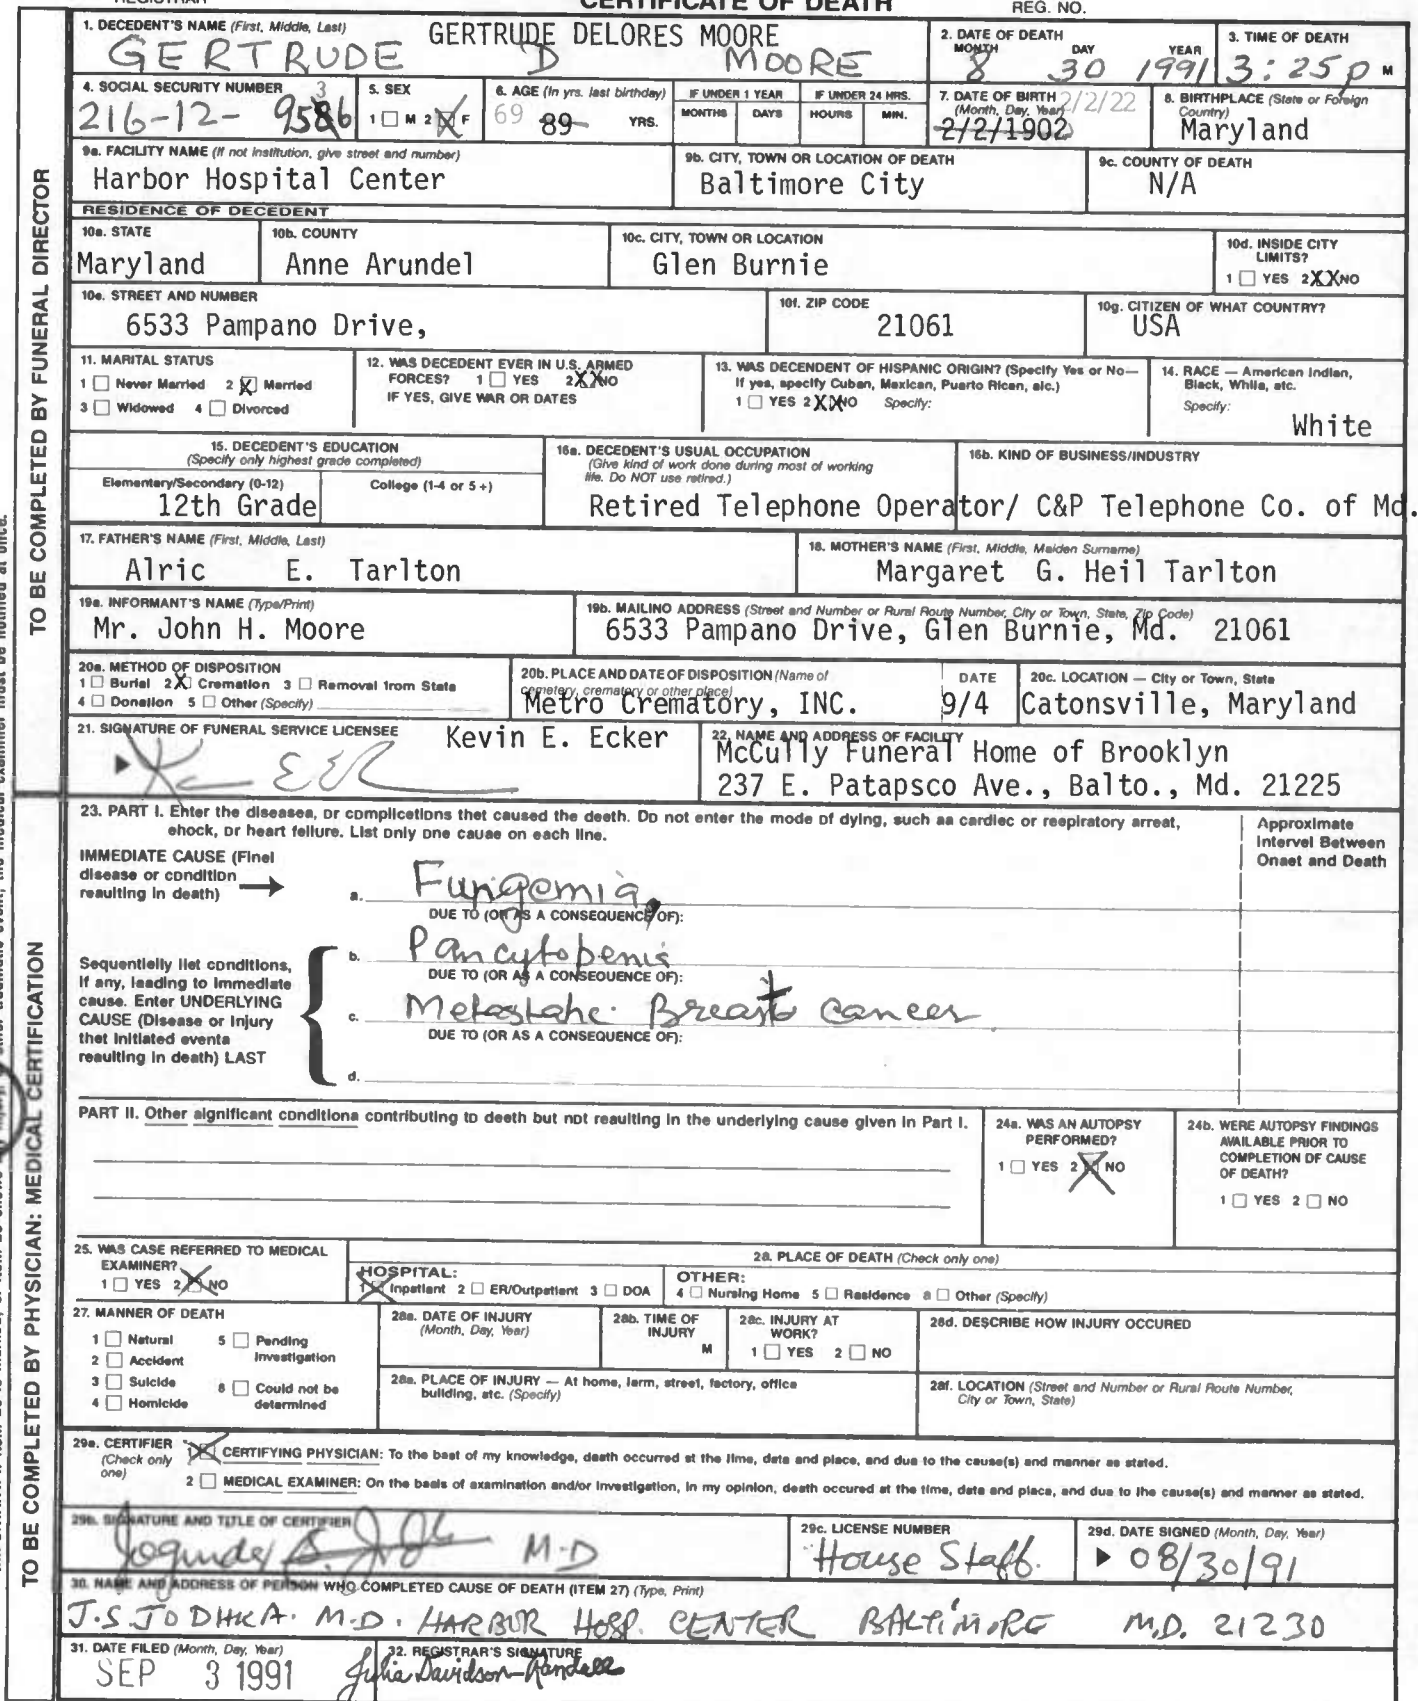 CERTIFICATE OF DEATH
REG. NO.
TO BE COMPLETED BY FUNERAL DIRECTOR
1. DECEDENT'S NAME (First, Middle, Last)
GERTRUDE DELORES MOORE
GERTRUDE D MOORE
2. DATE OF DEATH
MONTH DAY YEAR
8 30 1991
3. TIME OF DEATH
3:25 P M
4. SOCIAL SECURITY NUMBER
3
216-12-9586
5. SEX
1 M 2 X F
6. AGE (In yrs. last birthday)
69 89 YRS.
IF UNDER 1 YEAR
MONTHS DAYS
IF UNDER 24 HRS.
HOURS MIN.
7. DATE OF BIRTH 2/2/22
(Month, Day, Year)
2/2/1902
8. BIRTHPLACE (State or Foreign Country)
Maryland
9a. FACILITY NAME (If not institution, give street and number)
Harbor Hospital Center
9b. CITY, TOWN OR LOCATION OF DEATH
Baltimore City
9c. COUNTY OF DEATH
N/A
RESIDENCE OF DECEDENT
10a. STATE
Maryland
10b. COUNTY
Anne Arundel
10c. CITY, TOWN OR LOCATION
Glen Burnie
10d. INSIDE CITY LIMITS?
1 YES 2 XX NO
10e. STREET AND NUMBER
6533 Pampano Drive,
10f. ZIP CODE
21061
10g. CITIZEN OF WHAT COUNTRY?
USA
11. MARITAL STATUS
1 Never Married 2 X Married
3 Widowed 4 Divorced
12. WAS DECEDENT EVER IN U.S. ARMED
FORCES? 1 YES 2 XX NO
IF YES, GIVE WAR OR DATES
13. WAS DECENDENT OF HISPANIC ORIGIN? (Specify Yes or No—
If yes, specify Cuban, Mexican, Puerto Rican, etc.)
1 YES 2 XX NO Specify:
14. RACE — American Indian,
Black, White, etc.
Specify:
White
15. DECEDENT'S EDUCATION
(Specify only highest grade completed)
Elementary/Secondary (0-12) College (1-4 or 5+)
12th Grade
16a. DECEDENT'S USUAL OCCUPATION
(Give kind of work done during most of working
life. Do NOT use retired.)
16b. KIND OF BUSINESS/INDUSTRY
Retired Telephone Operator/ C&P Telephone Co. of Md.
17. FATHER'S NAME (First, Middle, Last)
Alric E. Tarlton
18. MOTHER'S NAME (First, Middle, Maiden Surname)
Margaret G. Heil Tarlton
19a. INFORMANT'S NAME (Type/Print)
Mr. John H. Moore
19b. MAILING ADDRESS (Street and Number or Rural Route Number, City or Town, State, Zip Code)
6533 Pampano Drive, Glen Burnie, Md. 21061
20a. METHOD OF DISPOSITION
1 Burial 2 X Cremation 3 Removal from State
4 Donation 5 Other (Specify)
20b. PLACE AND DATE OF DISPOSITION (Name of
cemetery, crematory or other place)
Metro Crematory, INC.
DATE
9/4
20c. LOCATION — City or Town, State
Catonsville, Maryland
21. SIGNATURE OF FUNERAL SERVICE LICENSEE
Kevin E. Ecker
22. NAME AND ADDRESS OF FACILITY
McCully Funeral Home of Brooklyn
237 E. Patapsco Ave., Balto., Md. 21225
TO BE COMPLETED BY PHYSICIAN: MEDICAL CERTIFICATION
23. PART I. Enter the diseases, or complications that caused the death. Do not enter the mode of dying, such as cardiac or respiratory arrest,
shock, or heart failure. List only one cause on each line.
Approximate
Interval Between
Onset and Death
IMMEDIATE CAUSE (Final
disease or condition
resulting in death)
a. Fungemia
DUE TO (OR AS A CONSEQUENCE OF):
Sequentially list conditions,
if any, leading to immediate
cause. Enter UNDERLYING
CAUSE (Disease or injury
that initiated events
resulting in death) LAST
b. Pancytopenia
DUE TO (OR AS A CONSEQUENCE OF):
c. Metastatic Breast cancer
DUE TO (OR AS A CONSEQUENCE OF):
d.
PART II. Other significant conditions contributing to death but not resulting in the underlying cause given in Part I.
24a. WAS AN AUTOPSY
PERFORMED?
1 YES 2 X NO
24b. WERE AUTOPSY FINDINGS
AVAILABLE PRIOR TO
COMPLETION OF CAUSE
OF DEATH?
1 YES 2 NO
25. WAS CASE REFERRED TO MEDICAL
EXAMINER?
1 YES 2 X NO
26. PLACE OF DEATH (Check only one)
HOSPITAL:
1 X Inpatient 2 ER/Outpatient 3 DOA
OTHER:
4 Nursing Home 5 Residence 6 Other (Specify)
27. MANNER OF DEATH
1 Natural 5 Pending
Investigation
2 Accident
3 Suicide 6 Could not be
determined
4 Homicide
28a. DATE OF INJURY
(Month, Day, Year)
28b. TIME OF
INJURY
M
28c. INJURY AT
WORK?
1 YES 2 NO
28d. DESCRIBE HOW INJURY OCCURED
28e. PLACE OF INJURY — At home, farm, street, factory, office
building, etc. (Specify)
28f. LOCATION (Street and Number or Rural Route Number,
City or Town, State)
29a. CERTIFIER
(Check only
one)
1 X CERTIFYING PHYSICIAN: To the best of my knowledge, death occurred at the time, date and place, and due to the cause(s) and manner as stated.
2 MEDICAL EXAMINER: On the basis of examination and/or investigation, in my opinion, death occured at the time, date and place, and due to the cause(s) and manner as stated.
29b. SIGNATURE AND TITLE OF CERTIFIER
M.D
29c. LICENSE NUMBER
House Staff.
29d. DATE SIGNED (Month, Day, Year)
08/30/91
30. NAME AND ADDRESS OF PERSON WHO COMPLETED CAUSE OF DEATH (ITEM 27) (Type, Print)
J.S JODHKA. M.D. HARBUR HOSP. CENTER BALTIMORE M.D. 21230
31. DATE FILED (Month, Day, Year)
SEP 3 1991
32. REGISTRAR'S SIGNATURE
Julia Davidson-Randall